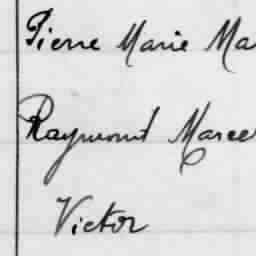 Pierre Marie Ma
Raymond Marce
Victor